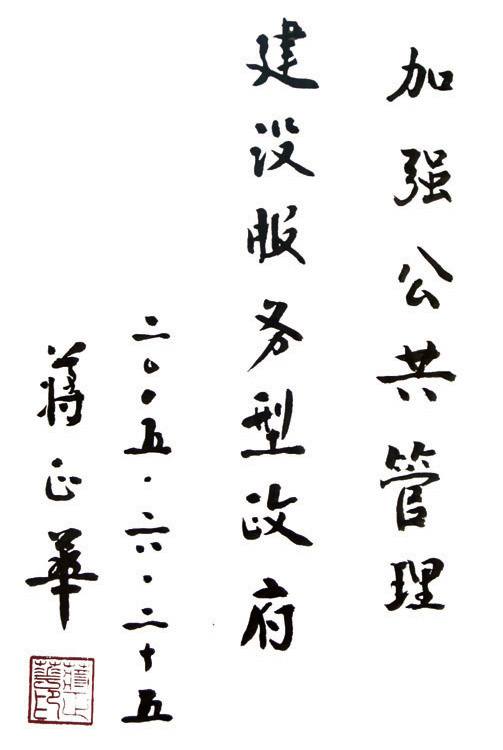 加强公共管理
建设服务型政府
二〇〇五·六·二十五
蒋正華
蒋正華印